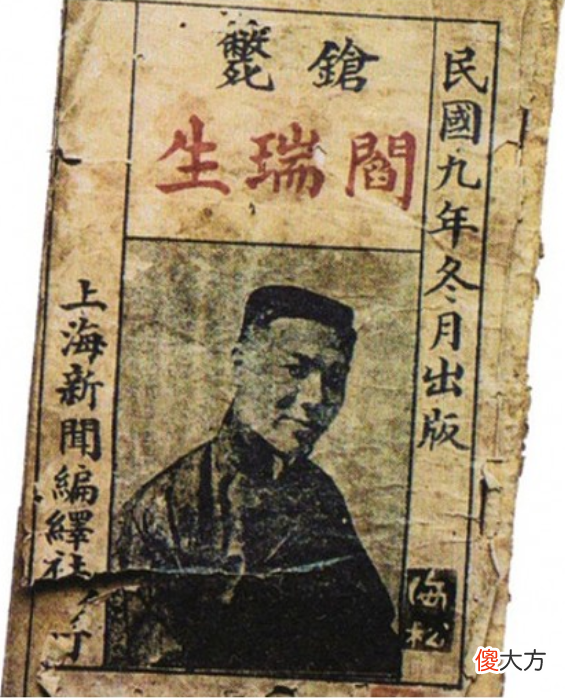 民國九年冬月出版
鎗斃
閻瑞生
上海新聞編繹社
海松
傻大方